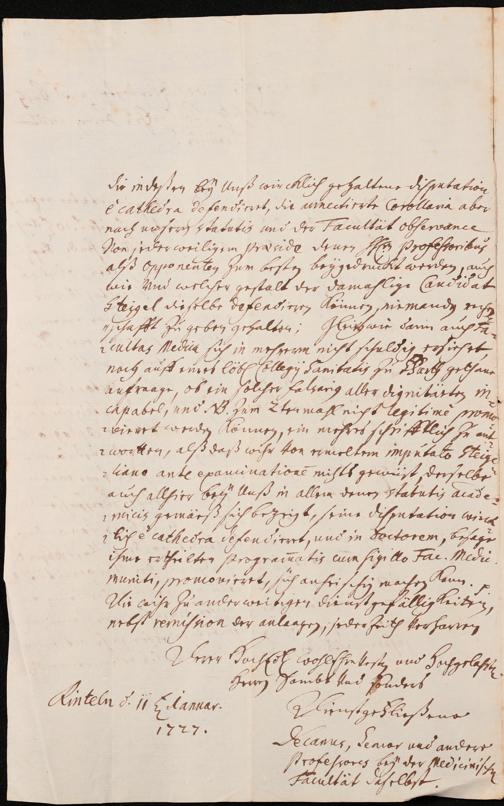 die indessen bey Unß würcklich gehaltene disputation
è cathedra defendiret, die annectierte Corollaria aber
nach unseren statutis und der Facultät observance
von jederweiligem praeside denen Professoribus
alß opponenten zum besten beygedruckt werden, auch
wie und welcher gestalt der damahlige Candidat
Steigel dieselbe defendieren können, niemanden
zu geben gehalten; Gleich wie dann auch Fa-
cultas Medica sich in mehrerm nicht schuldig erachtet
noch auff eines löbl. Collegij Sanitatis zu gethane
anfrage, ob ein solcher aller dignitäten in-
capabel, und NB. zum 2ten mahl nicht legitimè promo-
vieret werden können, ein mehres schrifftlich zu ant-
worten, alß daß wihr von ermeltem imputato Steige-
liano ante examinationem nichts gewüst, derselbe
auch allhier bey Unß in allem denen statutis acade-
micis gemäeß sich bezeigt, seine disputation würck-
lich è cathedra defendiret, und in Doctorem, besage
ihme ertheilten programmatis cum sigillo Fac. Medic.
muniti, promoviret, sich anheischig machen kann.
Die wihr zu anderweitigen dienstgefälligkeiten,
nebst remission der anlaagen, jederzeith verharren
Unserer HochEdl. Wohl Ehrenvesten und Hochgelehrte
Herren Sambt und sonders
Rinteln d. 11 Januar.
1727.
Dienstgeflissene
Decanus, Senior und andere
Professores bey der Medicinisch.
Facultät daselbst.